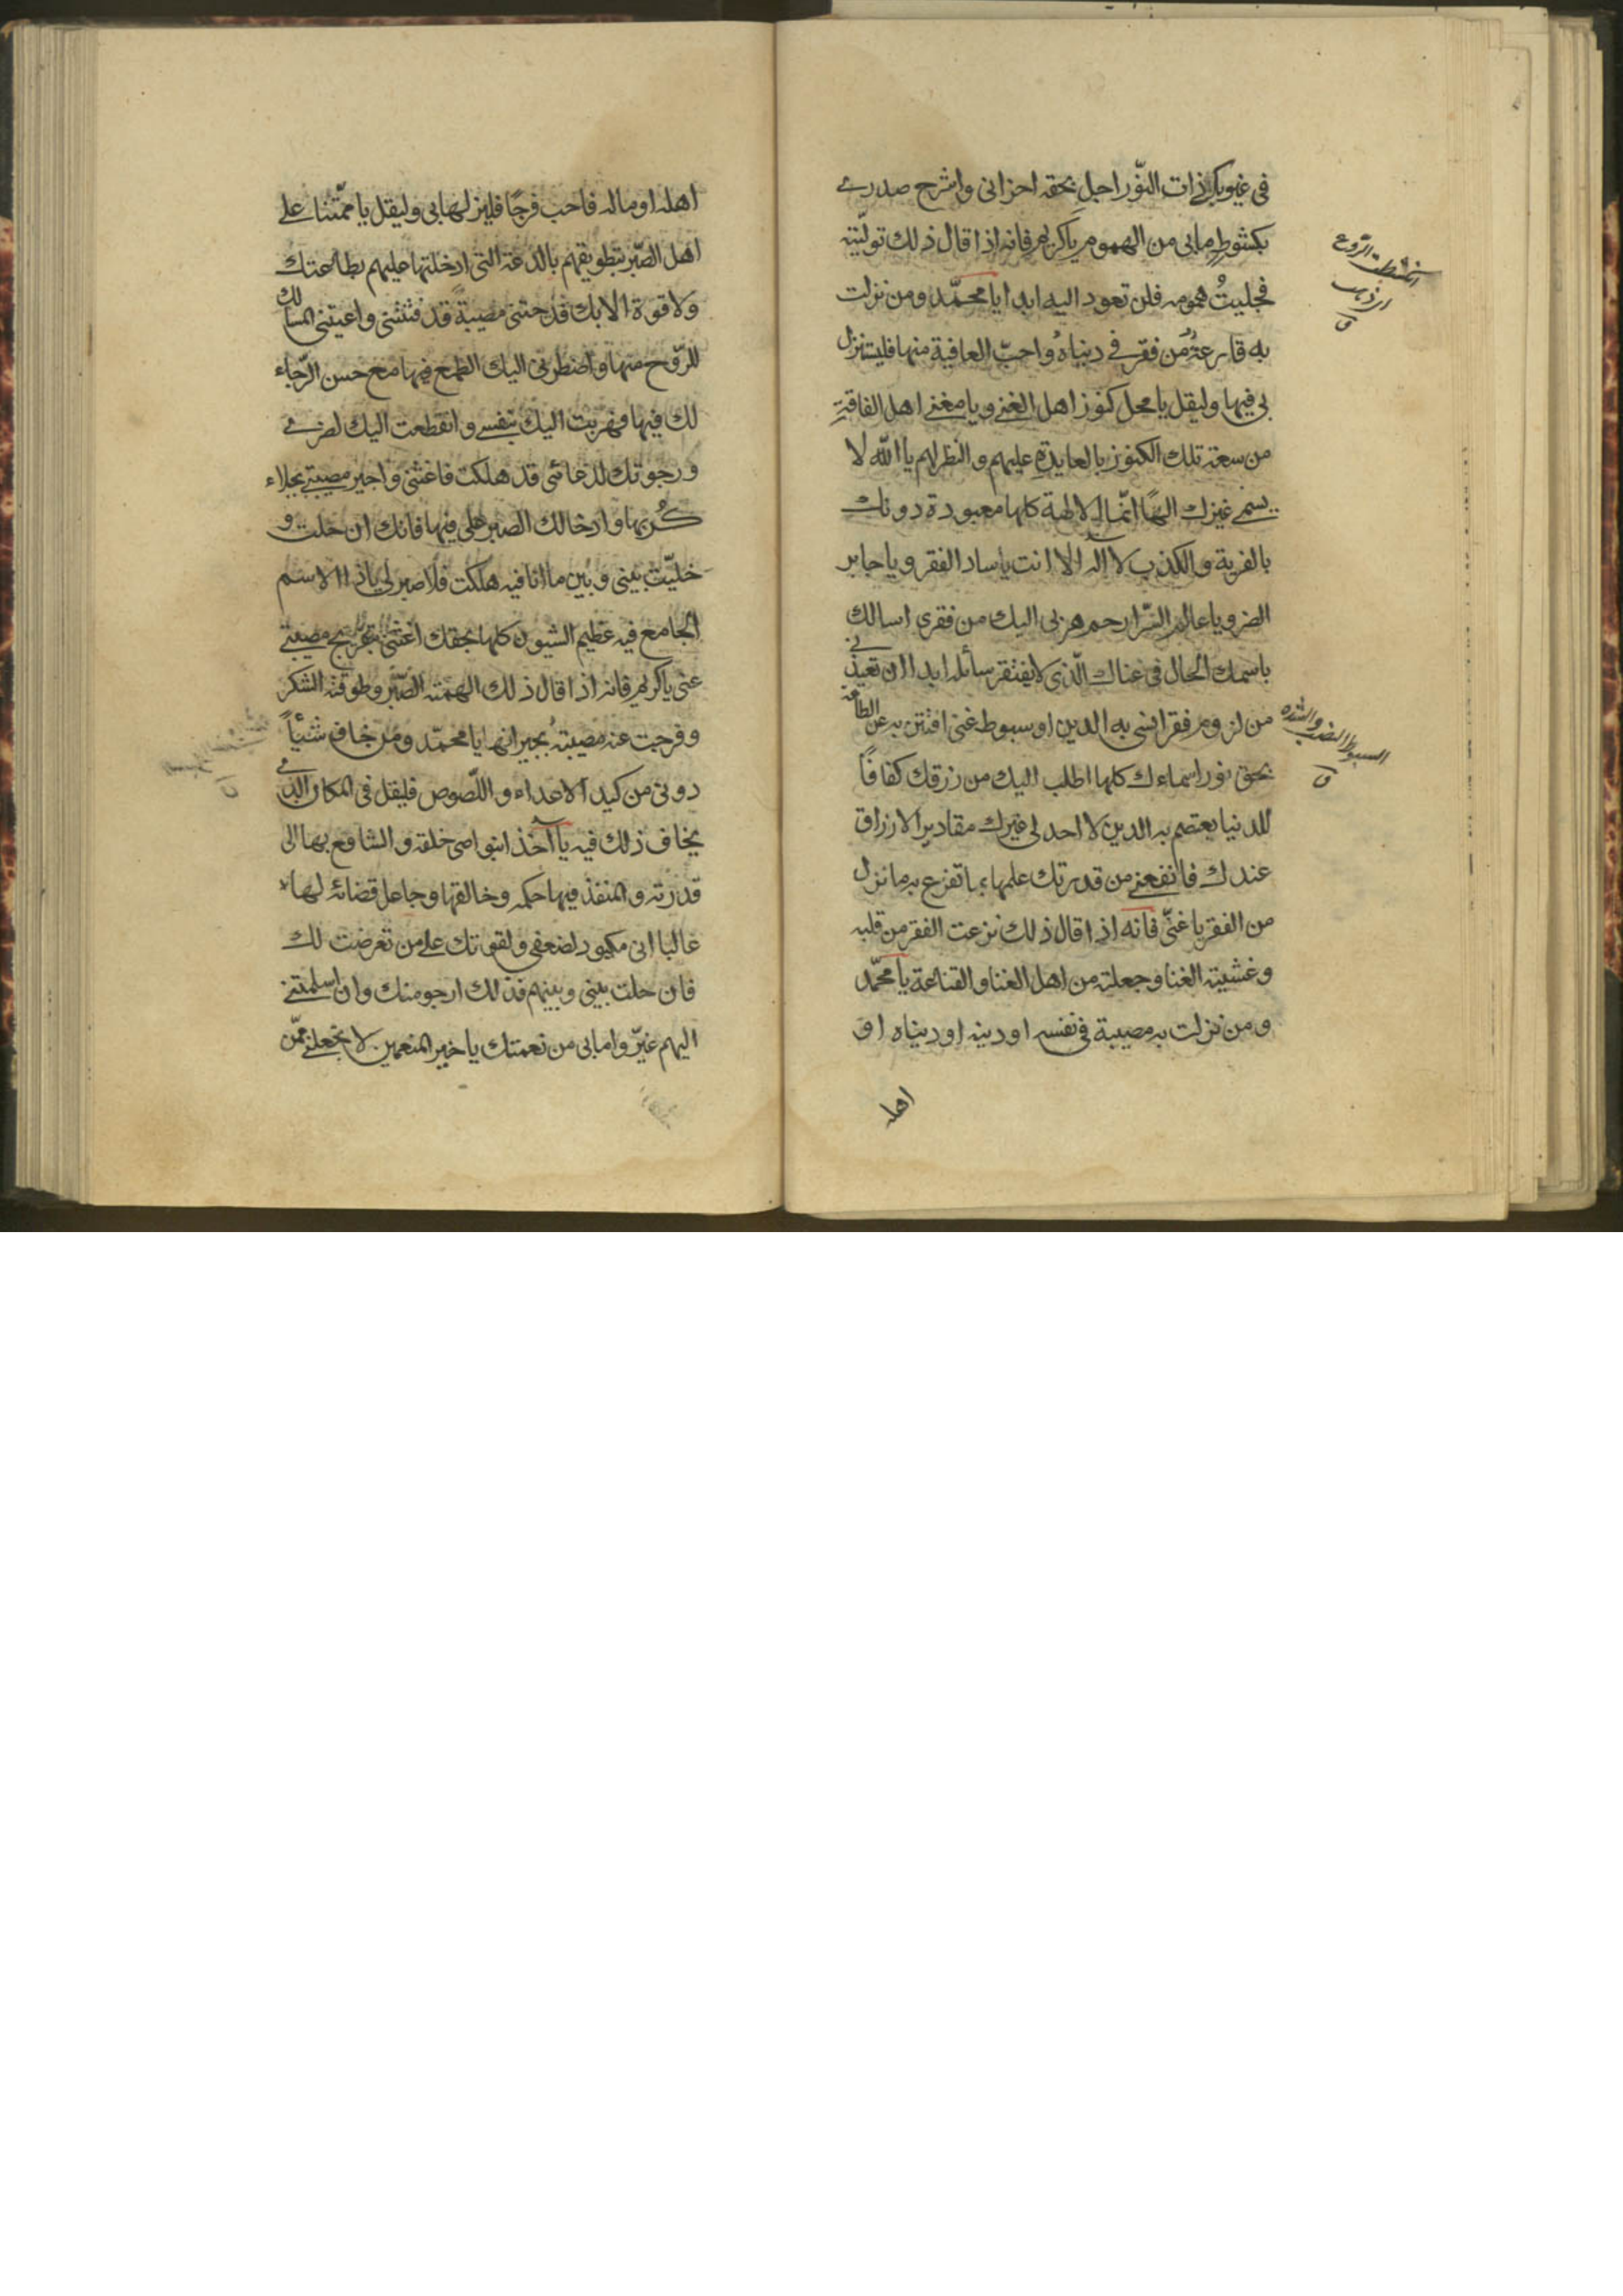 في غيوبك ذات النور اجل بحقه احزاني واشرح صدرى
بكشوط ما بي من الهموم يا كريم فانه اذا قال ذلك توليته
فجليت همومه فلن تعود اليه ابدا يا محمد ومن نزلت
به قارعة من فقر في دنياه واحب العافية منها فلينزل
بي فيها وليقل يا محل كنوز اهل الغنى ويا مغنى اهل الفاقة
من سعة تلك الكنوز بالعايدة عليهم والنظر لهم يا الله لا
يسمى غيرك الها انما الالهة كلها معبودة دونك
بالفرية والكذب لا اله الا انت يا ساد الفقر ويا جابر
الضر ويا عالم السر ارحم هربى اليك من فقرى اسالك
باسمك الحال في غناك الذى لا يفتقر سائله ابدا ان تعيذنى
من لزوم فقر انسى به الدين او سبوط غنى افتتن به عن الطاعة
بحق نور اسماءك كلها اطلب اليك من رزقك كفافا
للدنيا يعتصم به الدين لا احد لى غيرك مقادير الارزاق
عندك فانفعنى من قدرتك عليها بما تفزع به ما نزل
من الفقر يا غنى فانه اذا قال ذلك نزعت الفقر من قلبه
وغشيته الغنا وجعلته من اهل الغنا والقناعة يا محمد
ومن نزلت به مصيبة في نفسه او دينه او دنياه او
اهله
انكشطت الروع
اى ذهب
ق
ق
اهله او ماله فاحب فرجا فلينزلها بى وليقل يا ممتنا على
اهل الصبر بتطويقهم بالدعة التى ادخلتها عليهم بطاعتك
ولا قوة الا بك فدحتنى مصيبة قد فتنتنى واعيتنى المسالك
للروح منها واضطرنى اليك الطمع فيها مع حسن الرجاء
لك فيها فهربت اليك بنفسى وانقطعت اليك لضرى
ورجوتك لدعائى قد هلكت فاغثنى واجبر مصيبتى بجلاء
كربها وادخالك الصبر على فيها فانك ان حلت و
خليت بينى وبين ما انا فيه هلكت فلا صبر لى يا ذا الاسم
الجامع فيه عظيم الشيون كلها بحقك اغثنى بتفريج مصيبتى
عنى يا كريم فانه اذا قال ذلك الهمته الصبر وطوقته الشكر
وفرجت عنه مصيبته بجبرانها يا محمد ومن خاف شيئا
دونى من كيد الاعداء واللصوص فليقل في المكان الذى
يخاف ذلك فيه يا آخذا بنواصى خلقه والشافع بها الى
قدرته والمنفذ فيها حكمه وخالقها وجاعل قضائه لها
غالبا انى مكيود لضعفى ولقوتك على من تعرضت لك
فان حلت بينى وبينهم فذلك ارجو منك وان اسلمتنى
اليهم غيروا ما بى من نعمتك يا خير المنعمين لا تجعلنى ممن